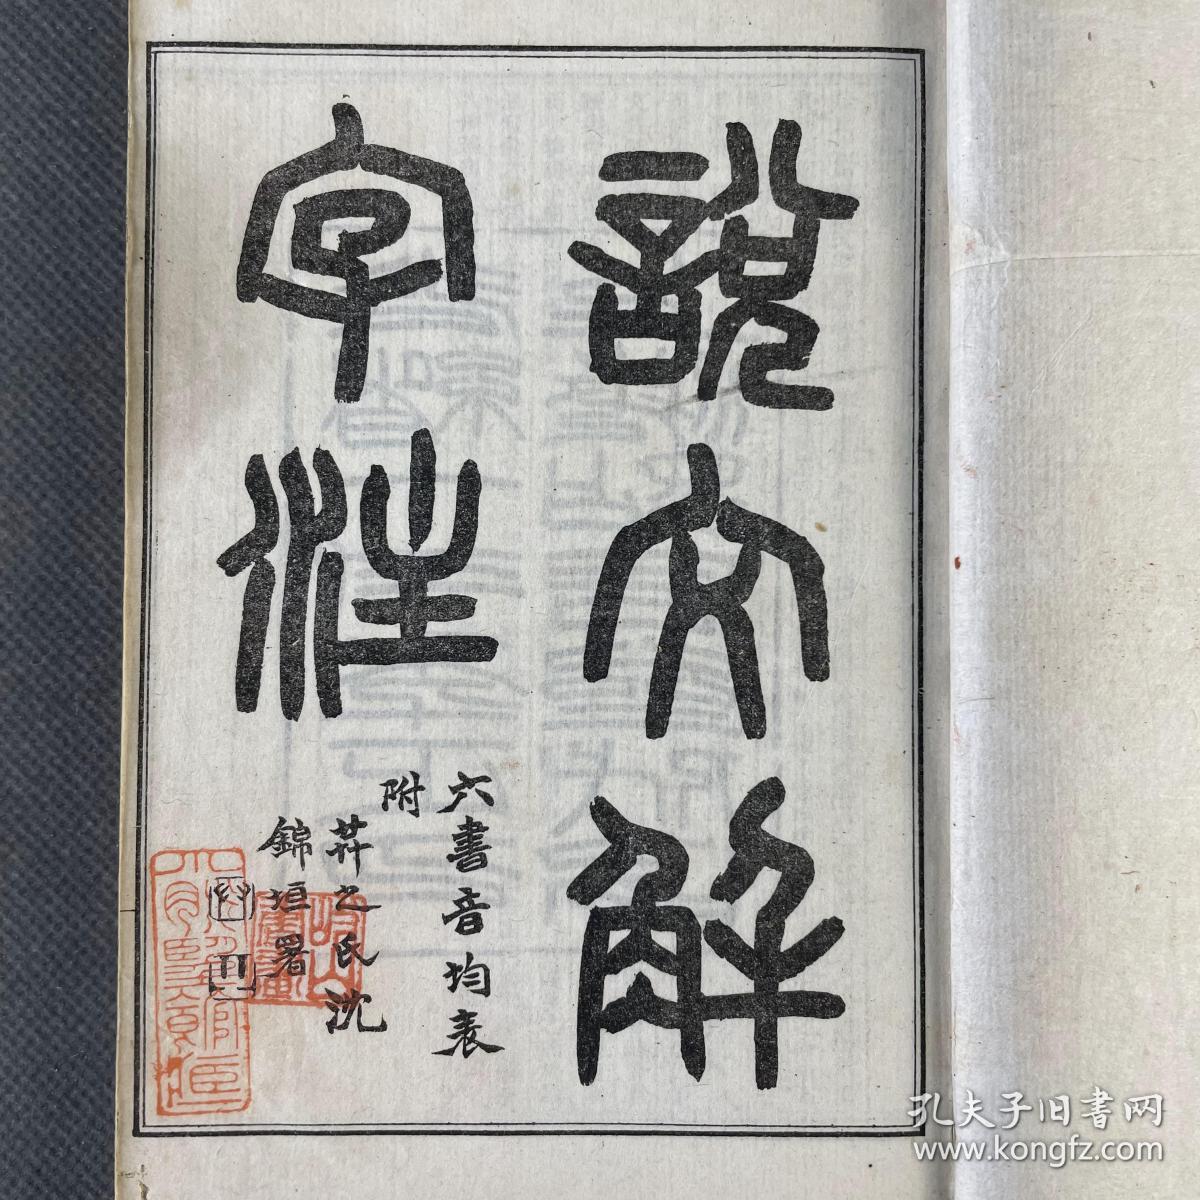 說文解
字注
六書音均表
附
莽之氏沈
錦垣署
孔夫子旧書网
www.kongfz.com